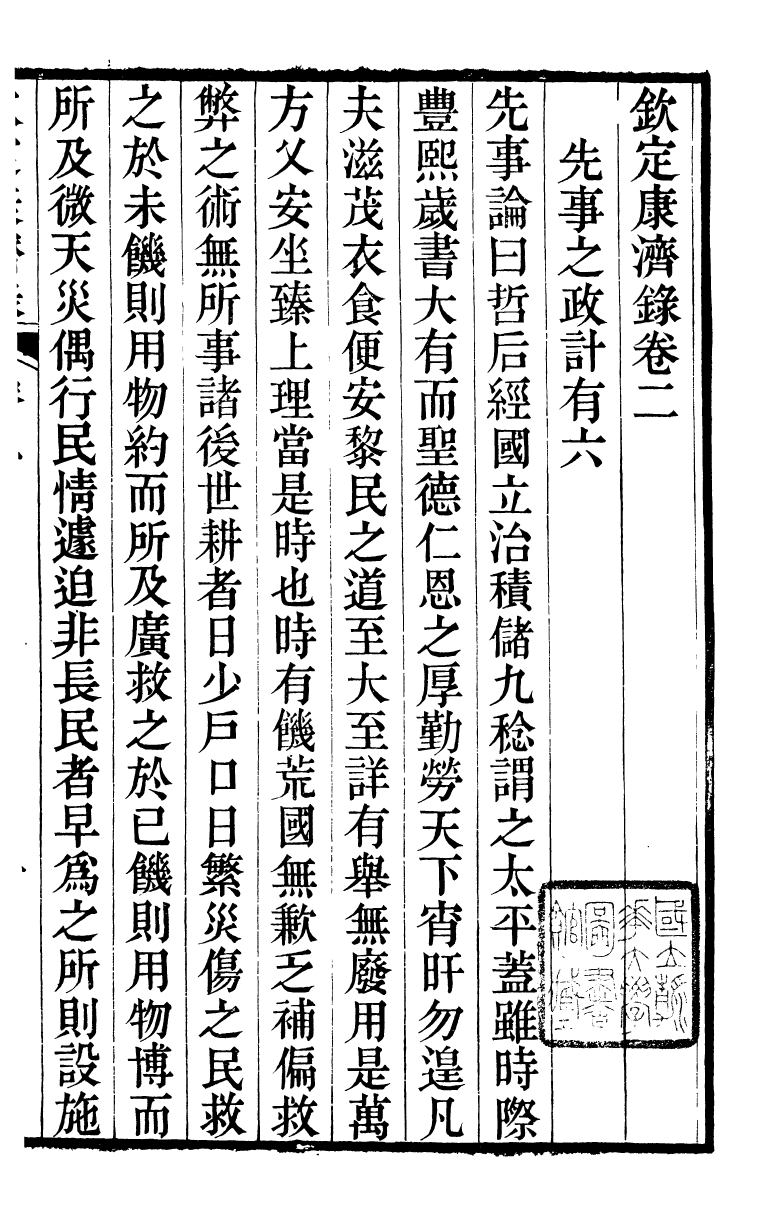 欽定康濟錄卷二
先事之政計有六
先事論曰哲后經國立治積儲九稔謂之太平蓋雖時際
豐熙歲書大有而聖德仁恩之厚勤勞天下宵旰勿遑凡
夫滋茂衣食便安黎民之道至大至詳有舉無廢用是萬
方乂安坐臻上理當是時也時有饑荒國無歉乏補偏救
弊之術無所事諸後世耕者日少戶口日繁災傷之民救
之於未饑則用物約而所及廣救之於已饑則用物博而
所及微天災偶行民情遽迫非長民者早爲之所則設施